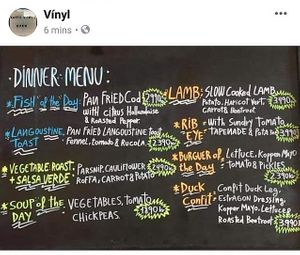 Vínyl
6 mins
DINNER MENU:
*FISH of the Day: PAN FRIED Cod
with citrus Hollandaise
& Roasted Pepper.
*LANGOUSTINE TOAST PAN FRIED LANGOUSTINE toast
Fennel, tomato & Rucola. 2390kr
*VEGETABLE ROAST + SALSA VERDE PARSNIP, CAULIFLOWER
ROFFA, CARROT & POTATO
*SOUP of the DAY VEGETABLES, TOMATO,
CHICKPEAS. 1890kr
*LAMB: SLOW COOKED LAMB,
POTATO, HARICOT
CARROT & Beetroot
*RIB "EYE" with SUNDRY TOMATO
TAPENADE & POTATO
*BURGUER of the Day Lettuce, Kopper Mayo
Tomato & Pickles
2.390kr
*Duck Confit Confit Duck Leg,
Estragon Dressing,
Kopper Mayo, Lettuce &
Roasted Beetroot